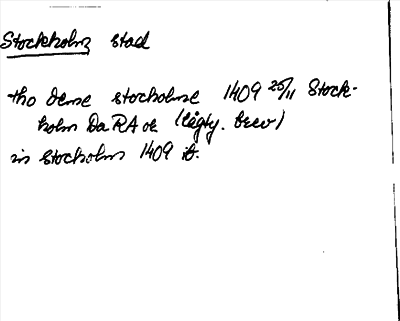 Stockholms stad
tho deme stocholme 1409 25/11 Stock-
holm DaRA or (lågty. brev)
in stocholm 1409 ib.